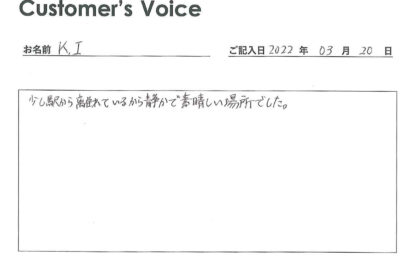 Customer's Voice
お名前 K.I ご記入日 2022 年 03 月 20 日
少し駅から離れているから静かで素晴しい場所でした。